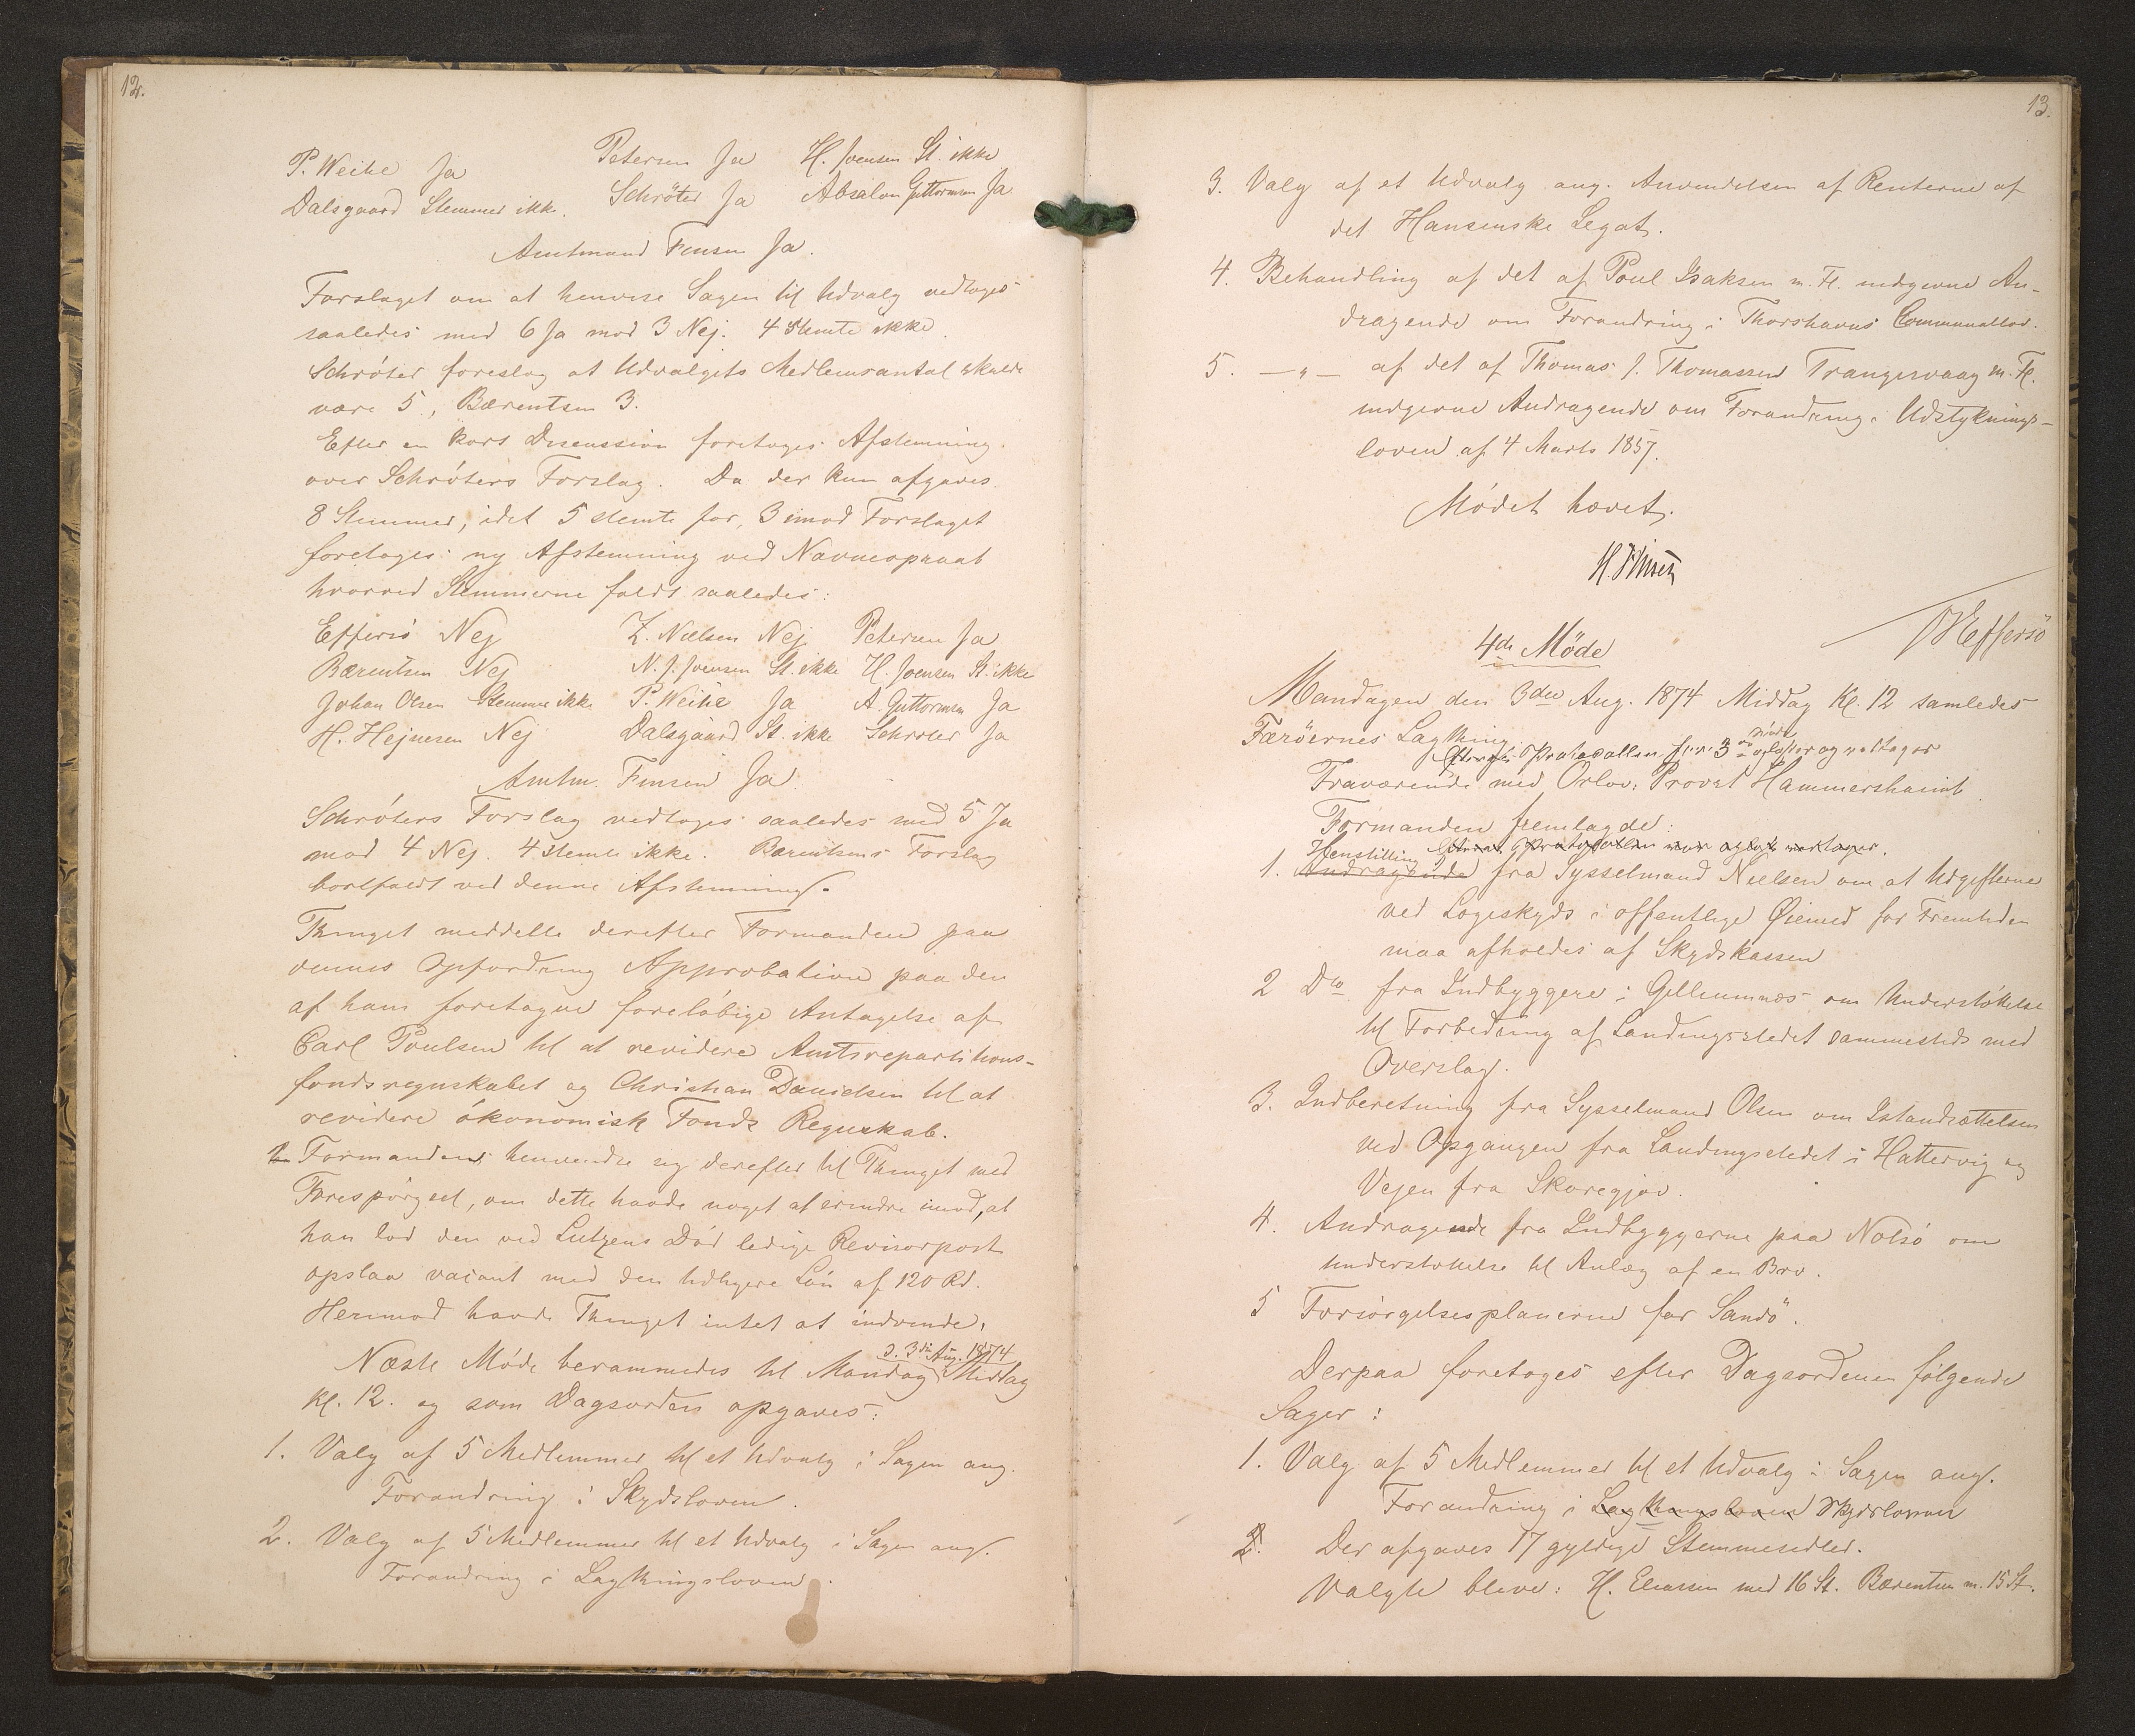 12.
P. Weihe Ja Petersen Ja H. Joensen St. ikke
Dalsgaard Stemmer ikke. Schröter Ja Absalon Guttormsen Ja
Amtmand Finsen Ja.
Forslaget om at henvise Sagen til Udvalg vedtoges
saaledes med 6 Ja mod 3 Nej. 4 stemte ikke.
Schröter foreslog at Udvalgets Medlemsantal skulde
være 5, Bærentsen 3.
Efter en kort Discussion foretoges Afstemning
over Schröters Forslag. Da der kun afgaves
8 Stemmer, idet 5 stemte for, 3 imod Forslaget
foretoges ny Afstemning ved Navneopraab
hvorved Stemmerne faldt saaledes:
Effersö Nej Z. Nielsen Nej Petersen Ja
Bærentsen Nej N. J. Joensen St. ikke H. Joensen St. ikke
Johan Olsen Stemmer ikke P. Weihe Ja A. Guttormsen Ja
H. Hejnesen Nej Dalsgaard St. ikke Schröter Ja
Amtm. Finsen Ja
Schröters Forslag vedtoges saaledes med 5 Ja
mod 4 Nej. 4 stemte ikke. Bærentsens Forslag
bortfaldt ved denne Afstemning.
Thinget meddelte derefter Formanden paa
dennes Opfordring Approbation paa den
af ham foretagne foreløbige Antagelse af
Carl Poulsen til at revidere Amtsrepartitions-
fondsregnskabet og Christian Danielsen til at
revidere ökonomisk Fonds Regnskab.
Formanden henvendte sig derefter til Thinget med
Forespörgsel, om dette havde noget at erindre imod, at
han lod den ved Lützens Död ledige Revisorpost
opslaa vacant med den tidligere Lön af 120 Rd.
Herimod havde Thinget intet at indvende.
d. 3die Aug. 1874
Næste Möde berammedes til Mandag Middag
Kl. 12. og som Dagsorden opgaves:
1. Valg af 5 Medlemmer til et Udvalg i Sagen ang.
Forandring i Skydsloven.
2. Valg af 5 Medlemmer til et Udvalg i Sagen ang.
Forandring i Lagthingsloven.
13.
3. Valg af et Udvalg ang. Anvendelsen af Renterne af
det Hansenske Legat.
4. Behandling af det af Poul Isaksen m. Fl. indgivne An-
dragende om Forandring i Thorshavns Communallov.
5. —„— af det af Thomas J. Thomassen Trangisvaag m. Fl.
indgivne Andragende om Forandring i Udstyknings-
loven af 4 Marts 1857.
Mödet hævet.
H. Finsen
Effersö
4de Möde
Mandagen den 3die Aug. 1874 Middag Kl. 12 samledes
Færöernes Lagthing.
Protocollen for 3die Möde oplæstes og vedtoges
Fraværende med Orlov: Provst Hammershaimb.
Formanden fremlagde:
1. Henstilling Andragende fra Sysselmand Nielsen om at Udgifterne
ved Logeskyds i offentlige Øiemed for Fremtiden
maa afholdes af Skydskassen
2 Do fra Indbyggere i Gjllumnæs om Understöttelse
til Forbedring af Landingsstedet sammesteds med
Overslag.
3. Indberetning fra Sysselmand Olsen om Istandsættelsen
ved Opgangen fra Landingsstedet i Hattervig og
Vejen fra Skoregjov.
4. Andragende fra Indbyggerne paa Nolsö om
Understöttelse til Anlæg af en Bro.
5 Forsörgelsesplanerne for Sandö.
Derpaa foretoges efter Dagsordenen fölgende
Sager:
1. Valg af 5 Medlemmer til et Udvalg i Sagen ang.
Forandring i Lagthingsloven Skydsloven
2. Der afgaves 17 gyldige Stemmesedler.
Valgte bleve: H. Eliassen med 16 St. Bærentsen m. 15 St.